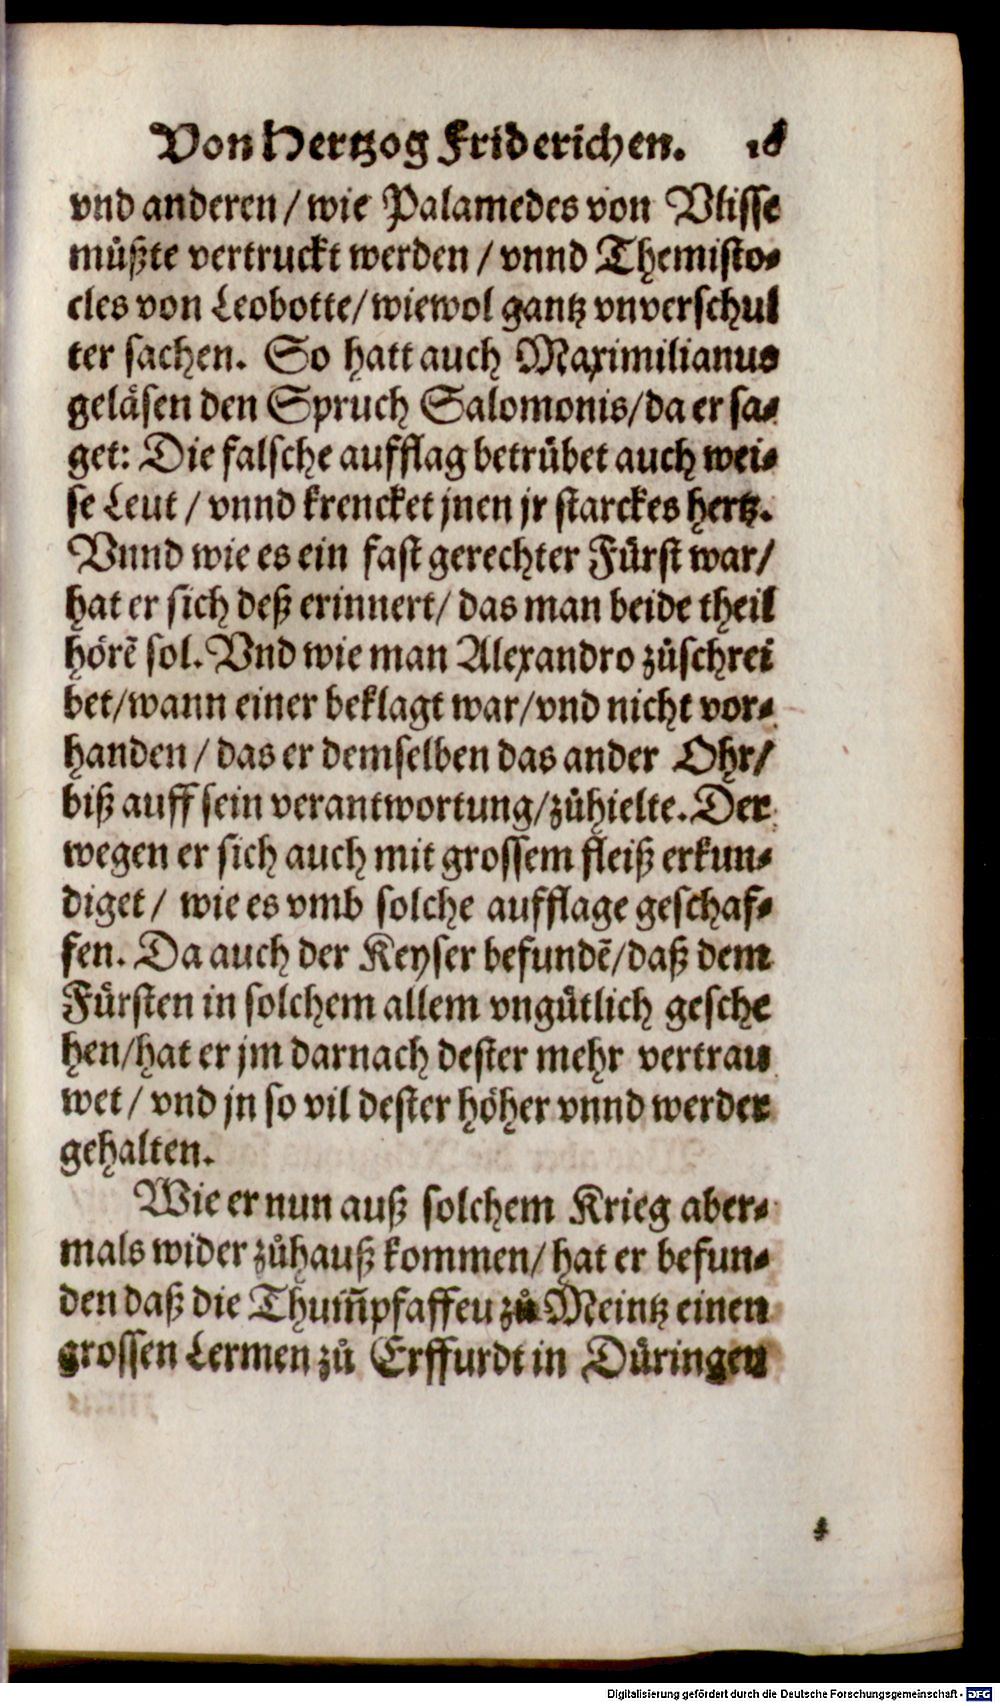 Von Hertzog Friderichen. 18
vnd anderen / wie Palamedes von Vlisse
müßte vertruckt werden / vnnd Themisto-
cles von Leobotte/ wiewol gantz vnverschul
ter sachen. So hatt auch Maximilianus
geläsen den Spruch Salomonis/ da er sa-
get: Die falsche aufflag betrübet auch wei-
se Leut / vnnd krencket jnen jr starckes hertz.
Vnnd wie es ein fast gerechter Fürst war/
hat er sich deß erinnert/ das man beide theil
hörẽ sol. Vnd wie man Alexandro zůschrei
bet/wann einer beklagt war/vnd nicht vor-
handen / das er demselben das ander Ohr/
biß auff sein verantwortung/zůhielte. Der
wegen er sich auch mit grossem fleiß erkun-
diget / wie es vmb solche aufflage geschaf-
fen. Da auch der Keyser befundẽ/daß dem
Fürsten in solchem allem vngütlich gesche
hen/hat er jm darnach dester mehr vertrau
wet / vnd jn so vil dester höher vnnd werder
gehalten.
Wie er nun auß solchem Krieg aber-
mals wider zůhauß kommen/ hat er befun-
den daß die Thum̃pfaffen zů Meintz einen
grossen Lermen zů Erffurdt in Düringen
Digitalisierung gefördert durch die Deutsche Forschungsgemeinschaft - DFG